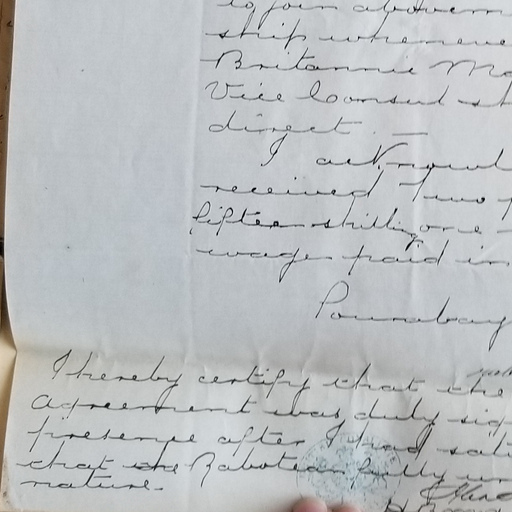 to join abovem
ship wheneve
Britannic Ma
Vice Consul sh
direct. —
I acknowl
received Two p
fifteen shilling one
wage paid in
I hereby certify that the
agreement was duly sig
presence after I had sati
that the Rabotean fully un
nature.